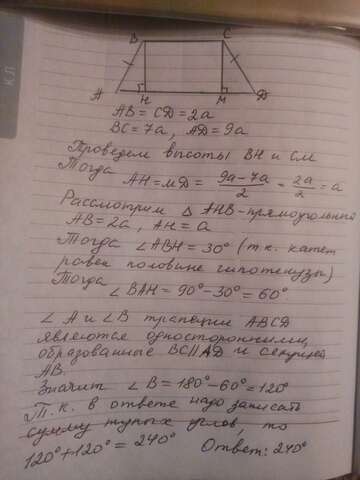 КЛ
B C
A H M D
AB = CD = 2a
BC = 7a, AD = 9a
Проведем высоты BH и CM
Тогда
AH = MD = (9a - 7a)/2 = 2a/2 = a
Рассмотрим △ AHB - прямоугольный
AB = 2a, AH = a
Тогда ∠ABH = 30° (т.к. катет
равен половине гипотенузы)
Тогда
∠BAH = 90° - 30° = 60°
∠A и ∠B трапеции ABCD
являются односторонними,
образованные BC||AD и секущей
AB.
Значит ∠B = 180° - 60° = 120°
Т.к. в ответе надо записать
сумму тупых углов, то
120° + 120° = 240° Ответ: 240°